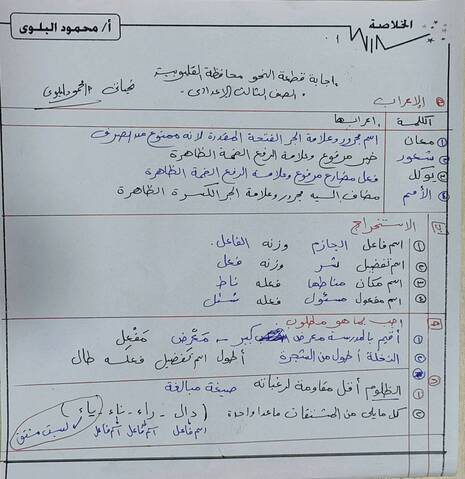 الخلاصة
أ/ محمود البلوى
إجابة قطعة النحو محافظة القليوبية
الصف الثالث الإعدادى
أ) الإعراب
الكلمة إعرابها
① معان اسم مجرور وعلامة الجر الفتحة المقدرة لأنه ممنوع من الصرف
② شعور خبر مرفوع وعلامة الرفع الضمة الظاهرة
③ يوكل فعل مضارع مرفوع وعلامة الرفع الضمة الظاهرة
④ الأمم مضاف إليه مجرور وعلامة الجر الكسرة الظاهرة
ب) الاستخراج
① اسم فاعل الجازم وزنه الفاعل.
② اسم تفضيل شر وزنه فعل
③ اسم مكان مناطها فعله ناط
④ اسم مفعول مسئول فعله سُئل
ج) أجب بما هو مطلوب
① أقيم بالمدرسة معرض كبير - مَعْرِض مَفْعِل
② النخلة أطول من الشجرة أطول اسم تفضيل فعله طال
د)
① الظلوم أقل مقاومة لرغباته صيغة مبالغة
② كل مايلى من المشتقات ماعدا واحدة (دال - راء - ناء - ياء)
اسم فاعل اسم فاعل اسم فاعل ليست مشتق